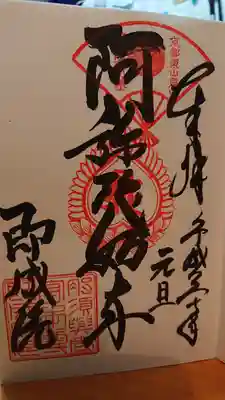 奉拝 平成三十年
元旦
阿弥陀如来
即成院